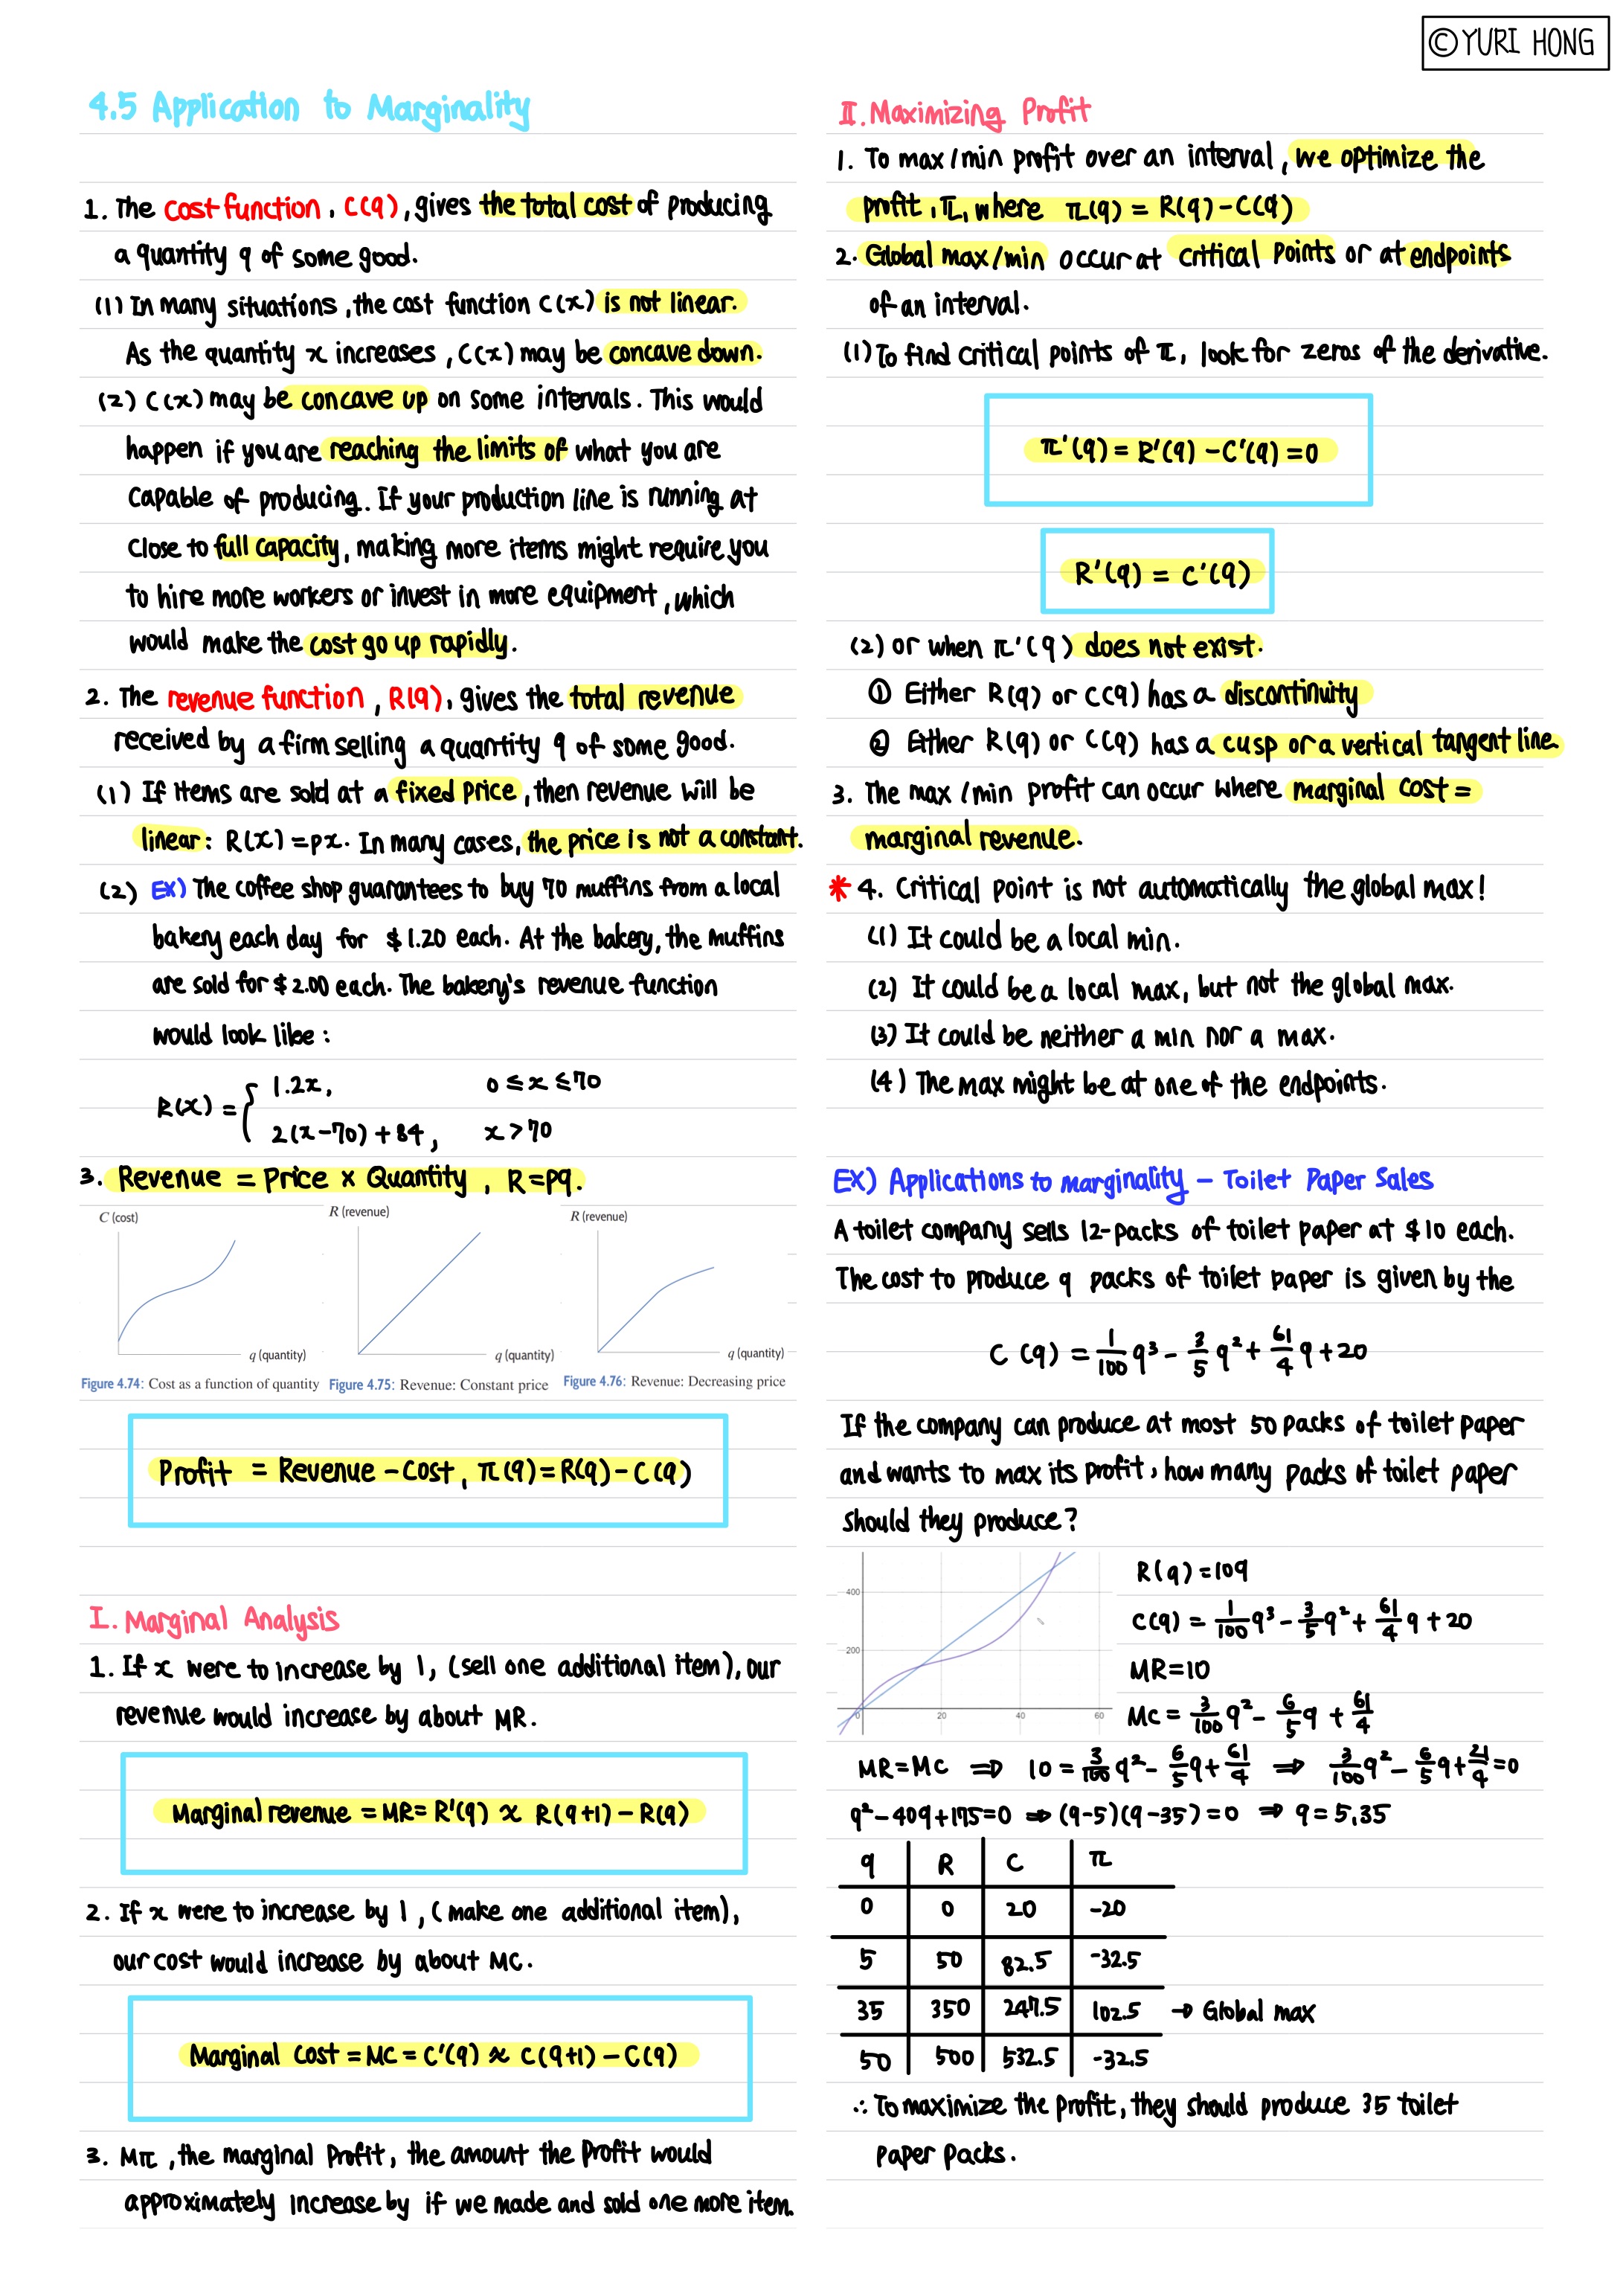 ©YURI HONG
4.5 Application to Marginality
1. The cost function, C(q), gives the total cost of producing
a quantity q of some good.
(1) In many situations, the cost function C(x) is not linear.
As the quantity x increases, C(x) may be concave down.
(2) C(x) may be concave up on some intervals. This would
happen if you are reaching the limits of what you are
capable of producing. If your production line is running at
close to full capacity, making more items might require you
to hire more workers or invest in more equipment, which
would make the cost go up rapidly.
2. The revenue function, R(q), gives the total revenue
received by a firm selling a quantity q of some good.
(1) If items are sold at a fixed price, then revenue will be
linear: R(x) = px. In many cases, the price is not a constant.
(2) EX) The coffee shop guarantees to buy 70 muffins from a local
bakery each day for $1.20 each. At the bakery, the muffins
are sold for $2.00 each. The bakery's revenue function
would look like:
R(x) = { 1.2x, 0 ≤ x ≤ 70
2(x-70) + 84, x > 70
3. Revenue = Price x Quantity, R=pq.
C (cost)
q (quantity)
Figure 4.74: Cost as a function of quantity
R (revenue)
q (quantity)
Figure 4.75: Revenue: Constant price
R (revenue)
q (quantity)
Figure 4.76: Revenue: Decreasing price
Profit = Revenue - Cost, π(q) = R(q) - C(q)
I. Marginal Analysis
1. If x were to increase by 1, (sell one additional item), our
revenue would increase by about MR.
Marginal revenue = MR = R'(q) ≈ R(q+1) - R(q)
2. If x were to increase by 1, (make one additional item),
our cost would increase by about MC.
Marginal cost = MC = C'(q) ≈ C(q+1) - C(q)
3. Mπ, the marginal Profit, the amount the Profit would
approximately increase by if we made and sold one more item.
II. Maximizing Profit
1. To max/min profit over an interval, we optimize the
profit, π, where π(q) = R(q) - C(q)
2. Global max/min occur at critical points or at endpoints
of an interval.
(1) To find critical points of π, look for zeros of the derivative.
π'(q) = R'(q) - C'(q) = 0
R'(q) = C'(q)
(2) or when π'(q) does not exist.
① Either R(q) or C(q) has a discontinuity
② Either R(q) or C(q) has a cusp or a vertical tangent line
3. The max/min profit can occur where marginal cost =
marginal revenue.
* 4. Critical point is not automatically the global max!
(1) It could be a local min.
(2) It could be a local max, but not the global max.
(3) It could be neither a min nor a max.
(4) The max might be at one of the endpoints.
EX) Applications to marginality - Toilet Paper Sales
A toilet company sells 12-packs of toilet paper at $10 each.
The cost to produce q packs of toilet paper is given by the
C(q) = 1/100 q³ - 3/5 q² + 61/4 q + 20
If the company can produce at most 50 packs of toilet paper
and wants to max its profit, how many packs of toilet paper
should they produce?
400
200
0 20 40 60
R(q) = 10q
C(q) = 1/100 q³ - 3/5 q² + 61/4 q + 20
MR = 10
MC = 3/100 q² - 6/5 q + 61/4
MR = MC ⇒ 10 = 3/100 q² - 6/5 q + 61/4 ⇒ 3/100 q² - 6/5 q + 21/4 = 0
q² - 40q + 175 = 0 ⇒ (q-5)(q-35) = 0 ⇒ q = 5, 35
q R C π
0 0 20 -20
5 50 82.5 -32.5
35 350 247.5 102.5 → Global max
50 500 532.5 -32.5
∴ To maximize the profit, they should produce 35 toilet
paper packs.